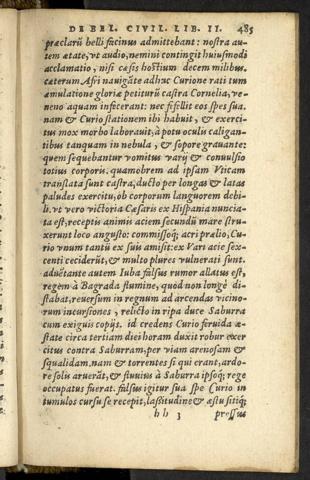 DE BEL. CIVIL. LIB. II. 485
præclarũ belli facinus admittebant: nostra au-
tem ætate, ut audio, nemini contingit huiusmodi
acclamatio, nisi cæsis hostium decem milibus.
cæterum Afri nauigãte adhuc Curione rati tum
æmulatione gloriæ petiturũ castra Cornelia, ue-
neno aquam infecerant: nec fefellit eos spes sua.
nam & Curio stationem ibi habuit, & exerci-
tus mox morbo laborauit, à potu oculis caligan-
tibus tanquam in nebula, & sopore grauante:
quem sequebantur uomitus uarij & conuulsio
totius corporis. quamobrem ad ipsam Vticam
translata sunt castra, ducto per longas & latas
paludes exercitu, ob corporum languorem debi-
li. ut uero uictoria Cæsaris ex Hispania nuncia-
ta est, receptis animis aciem secundũ mare stru-
xerunt loco angusto: commissoq; acri prælio, Cu-
rio unum tantũ ex suis amisit: ex Vari acie sex-
centi ceciderũt, & multo plures uulnerati sunt.
aduẽtante autem Iuba falsus rumor allatus est,
regem à Bagrada flumine, quod non longè di-
stabat, reuersum in regnum ad arcendas uicino-
rum incursiones, relicto in ripa duce Saburra
cum exiguis copijs. id credens Curio feruida æ-
state circa tertiam diei horam duxit robur exer
citus contra Saburram, per uiam arenosam &
squalidam. nam & torrentes si qui erant, ardo-
re solis aruerãt, & fluuius à Saburra ipsoq; rege
occupatus fuerat. falsus igitur sua spe Curio in
tumulos cursu se recepit, lassitudine & æstu sitiq;
hh 3 pressus